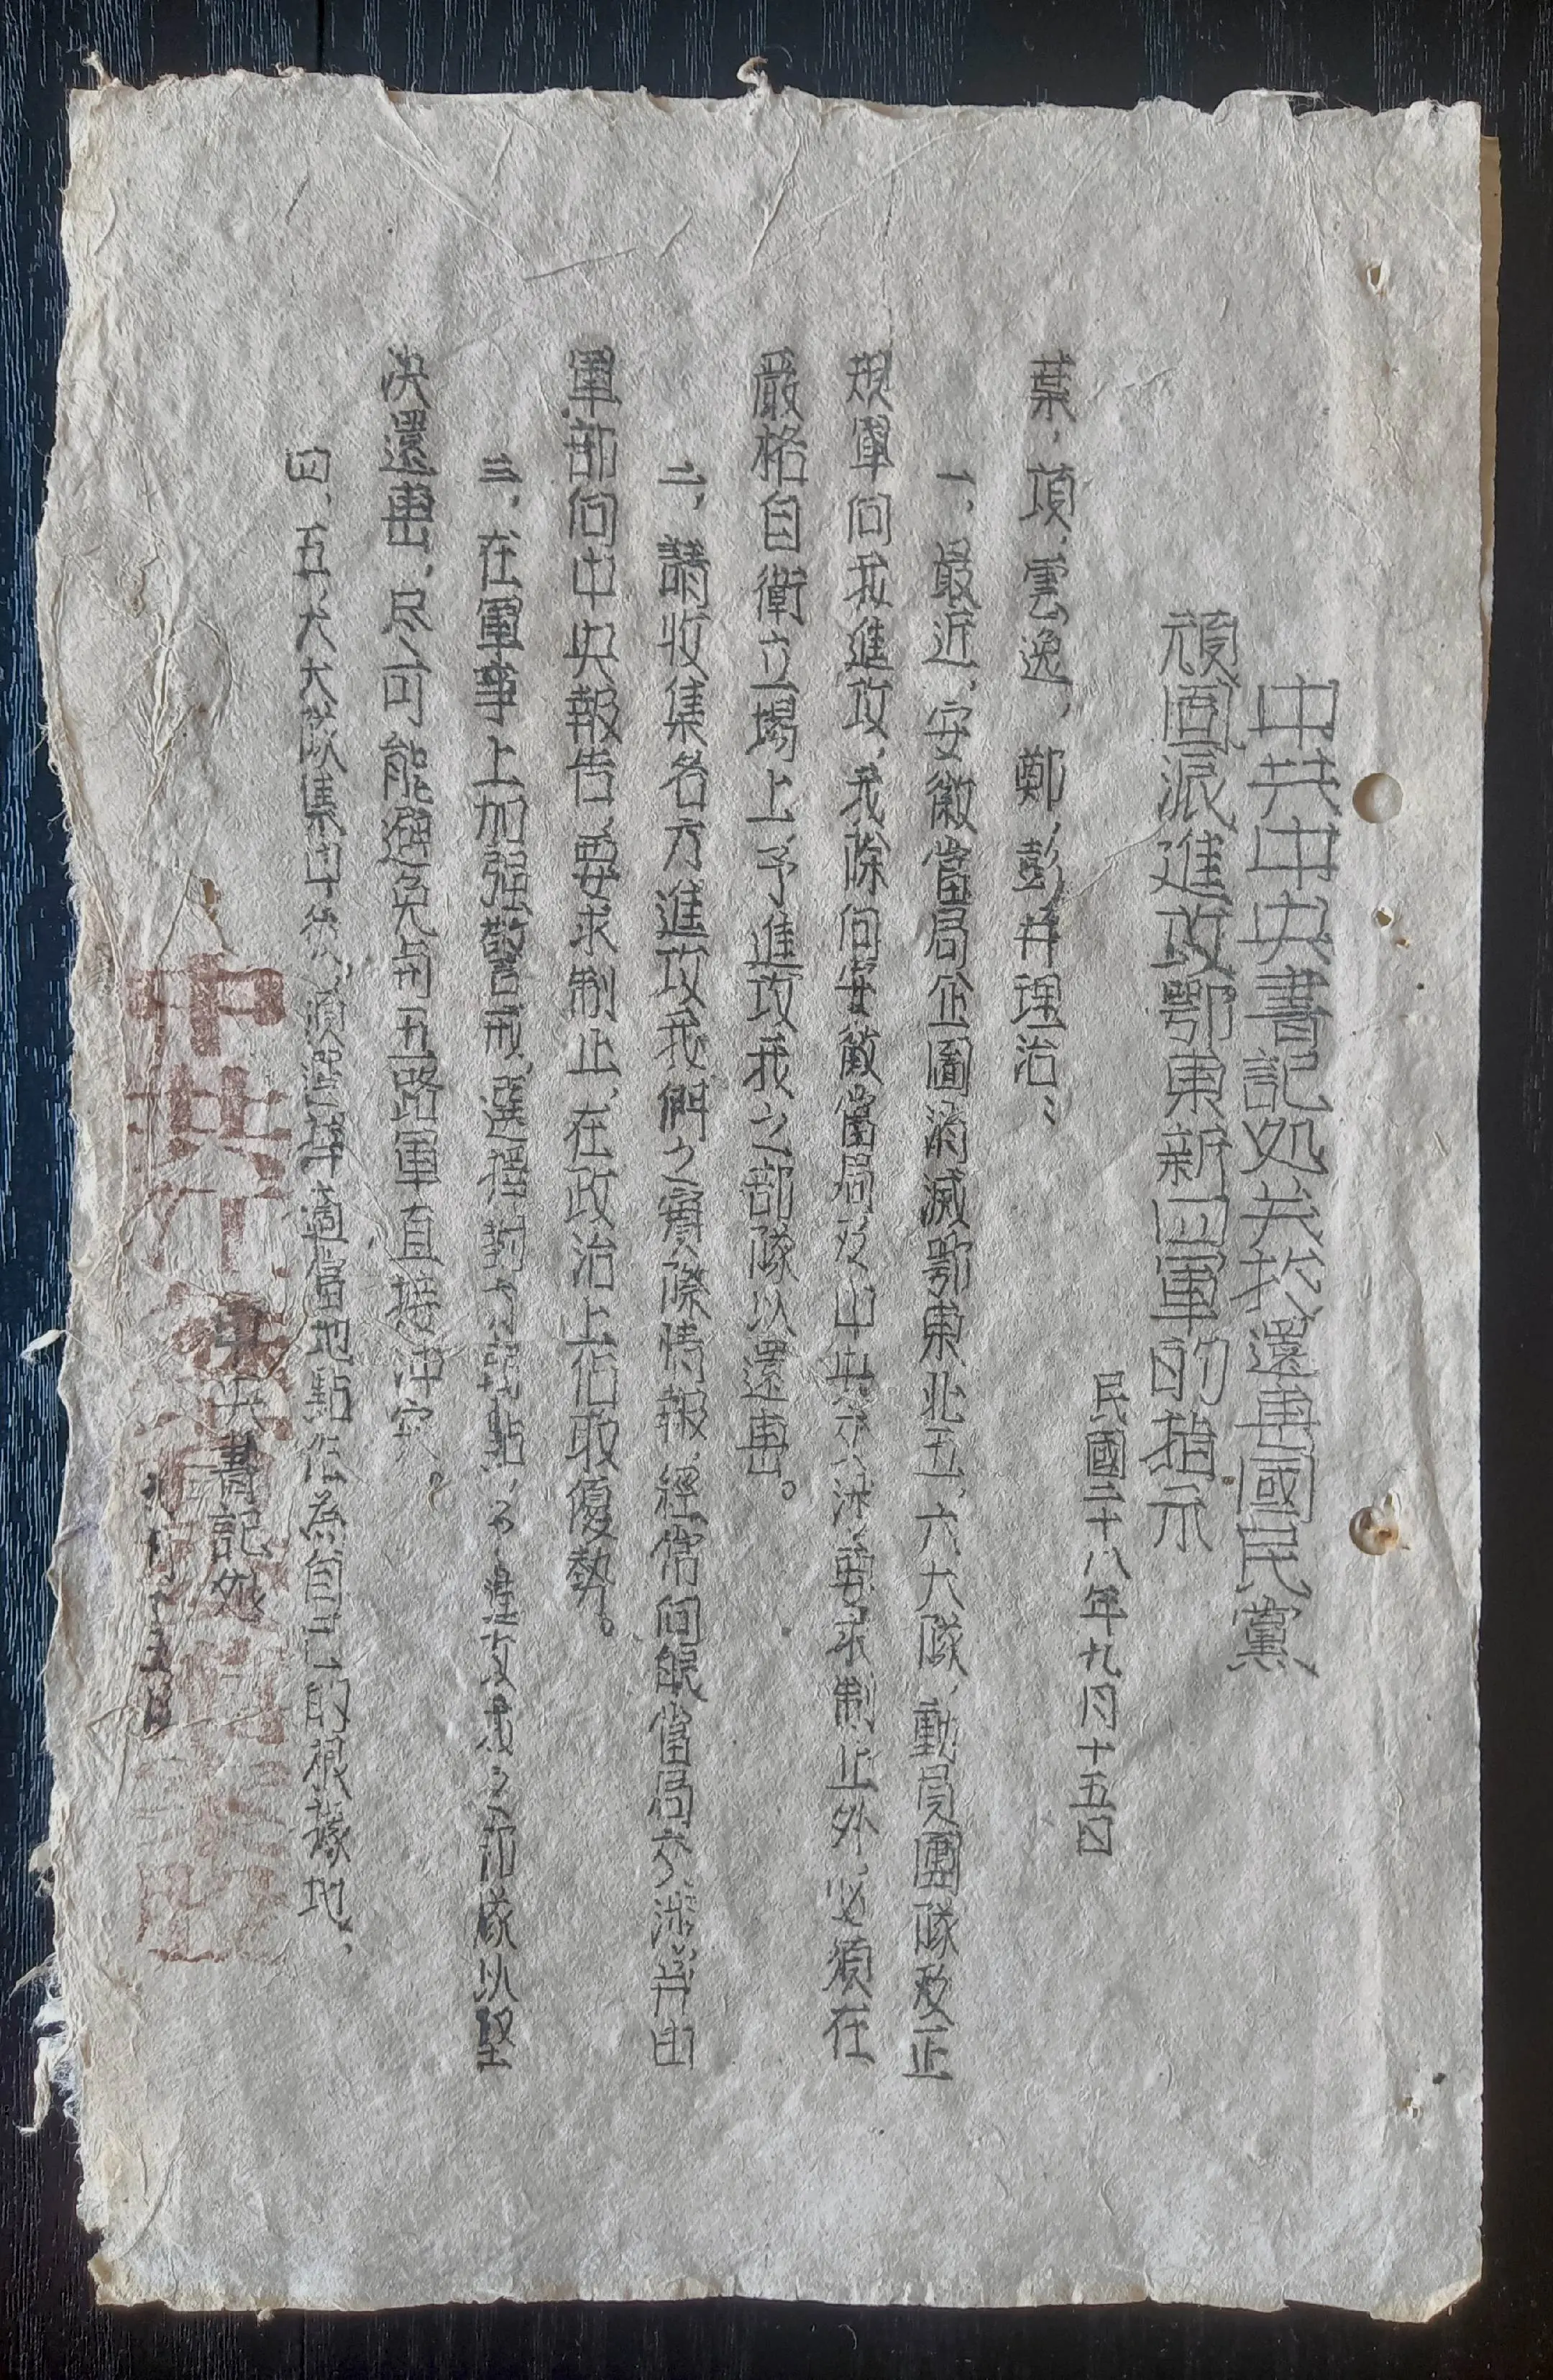 中共中央書記処关於還击國民黨
頑固派進攻鄂東新四軍的指示
民國二十八年九月十五日
葉，項，雲逸，鄭，彭并理治：
一，最近，安徽當局企圖消滅鄂東北五，六大隊，動員團隊及正
規軍向我進攻，我除向安徽當局及中央交涉，要求制止外，必須在
嚴格自衛立場上，予進攻我之部隊以還击。
二，請收集各方進攻我們之實際情報，經常向皖當局交涉，并由
軍部向中央報告，要求制止，在政治上佔取優勢。
三，在軍事上加强警戒，選擇對方弱點，予進攻我之部隊以堅
决還击，尽可能避免與五路軍直接冲突。
四，五，六大隊集中後，須選擇適當地點作為自己的根據地，
中央書記処
九月十五日
中共